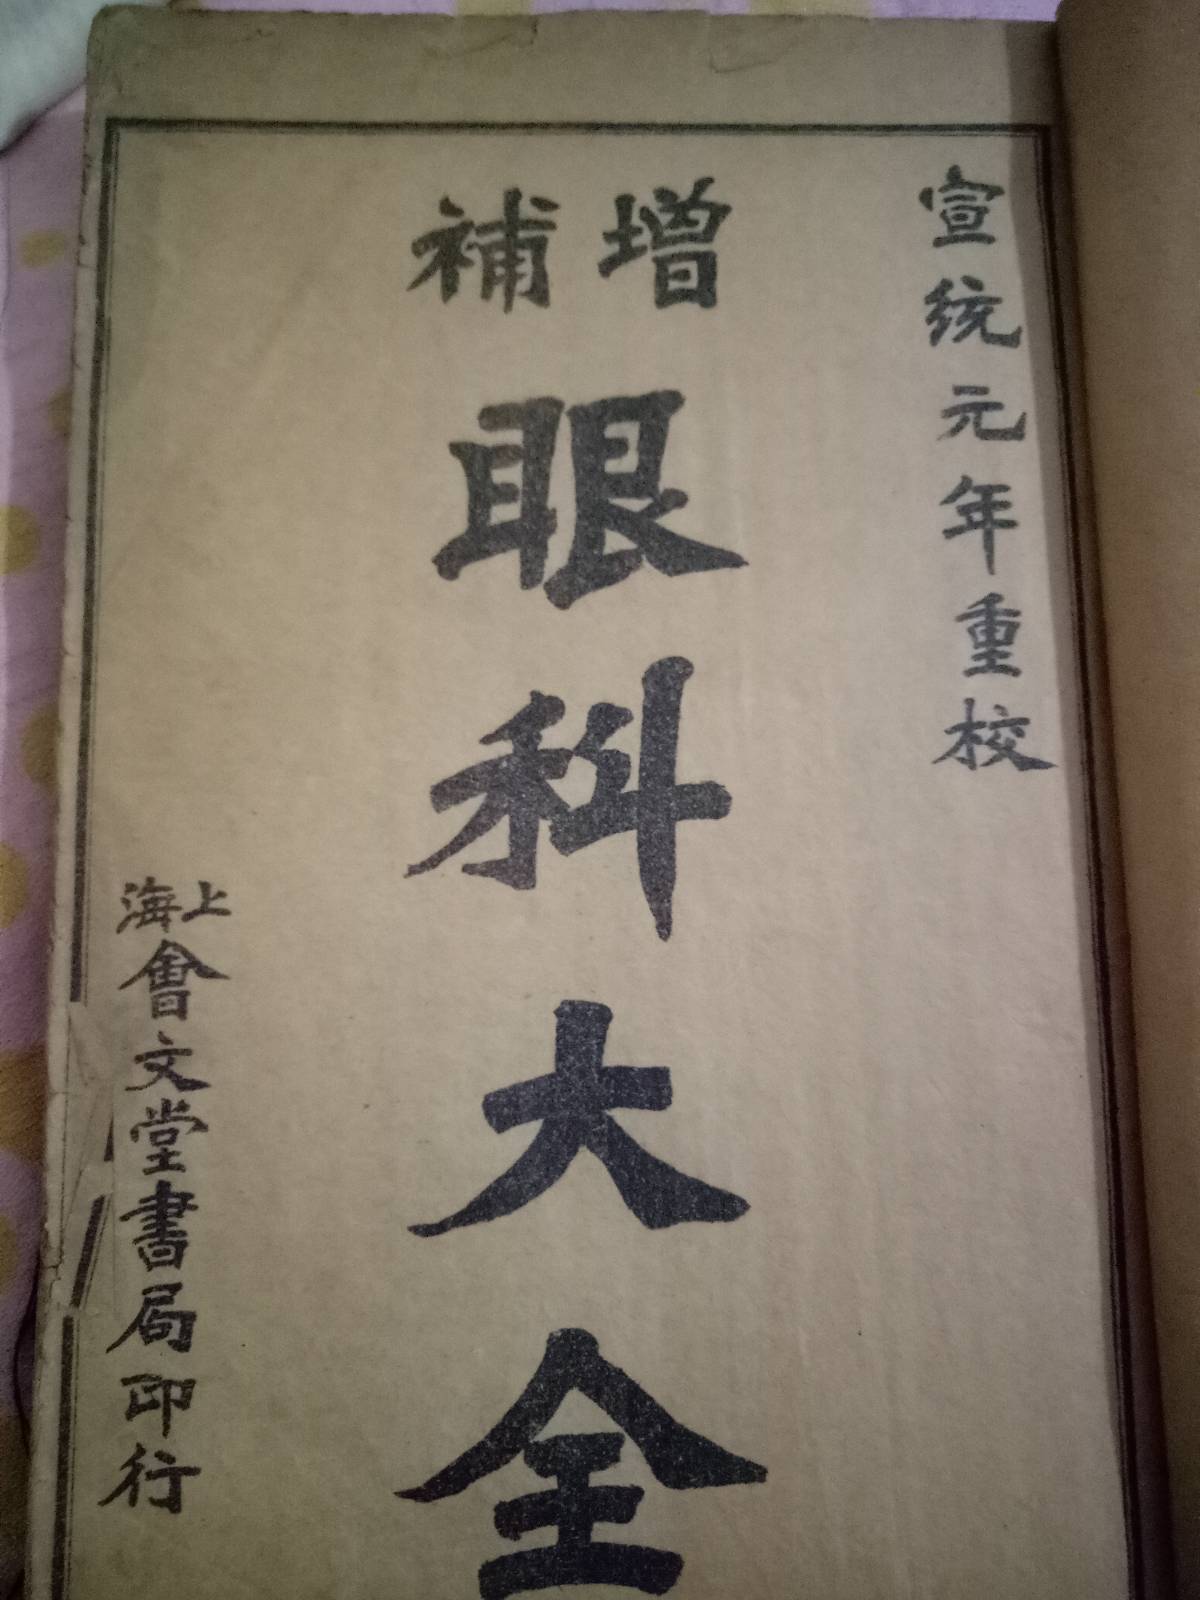 宣統元年重校
增補
眼科大全
上海會文堂書局印行